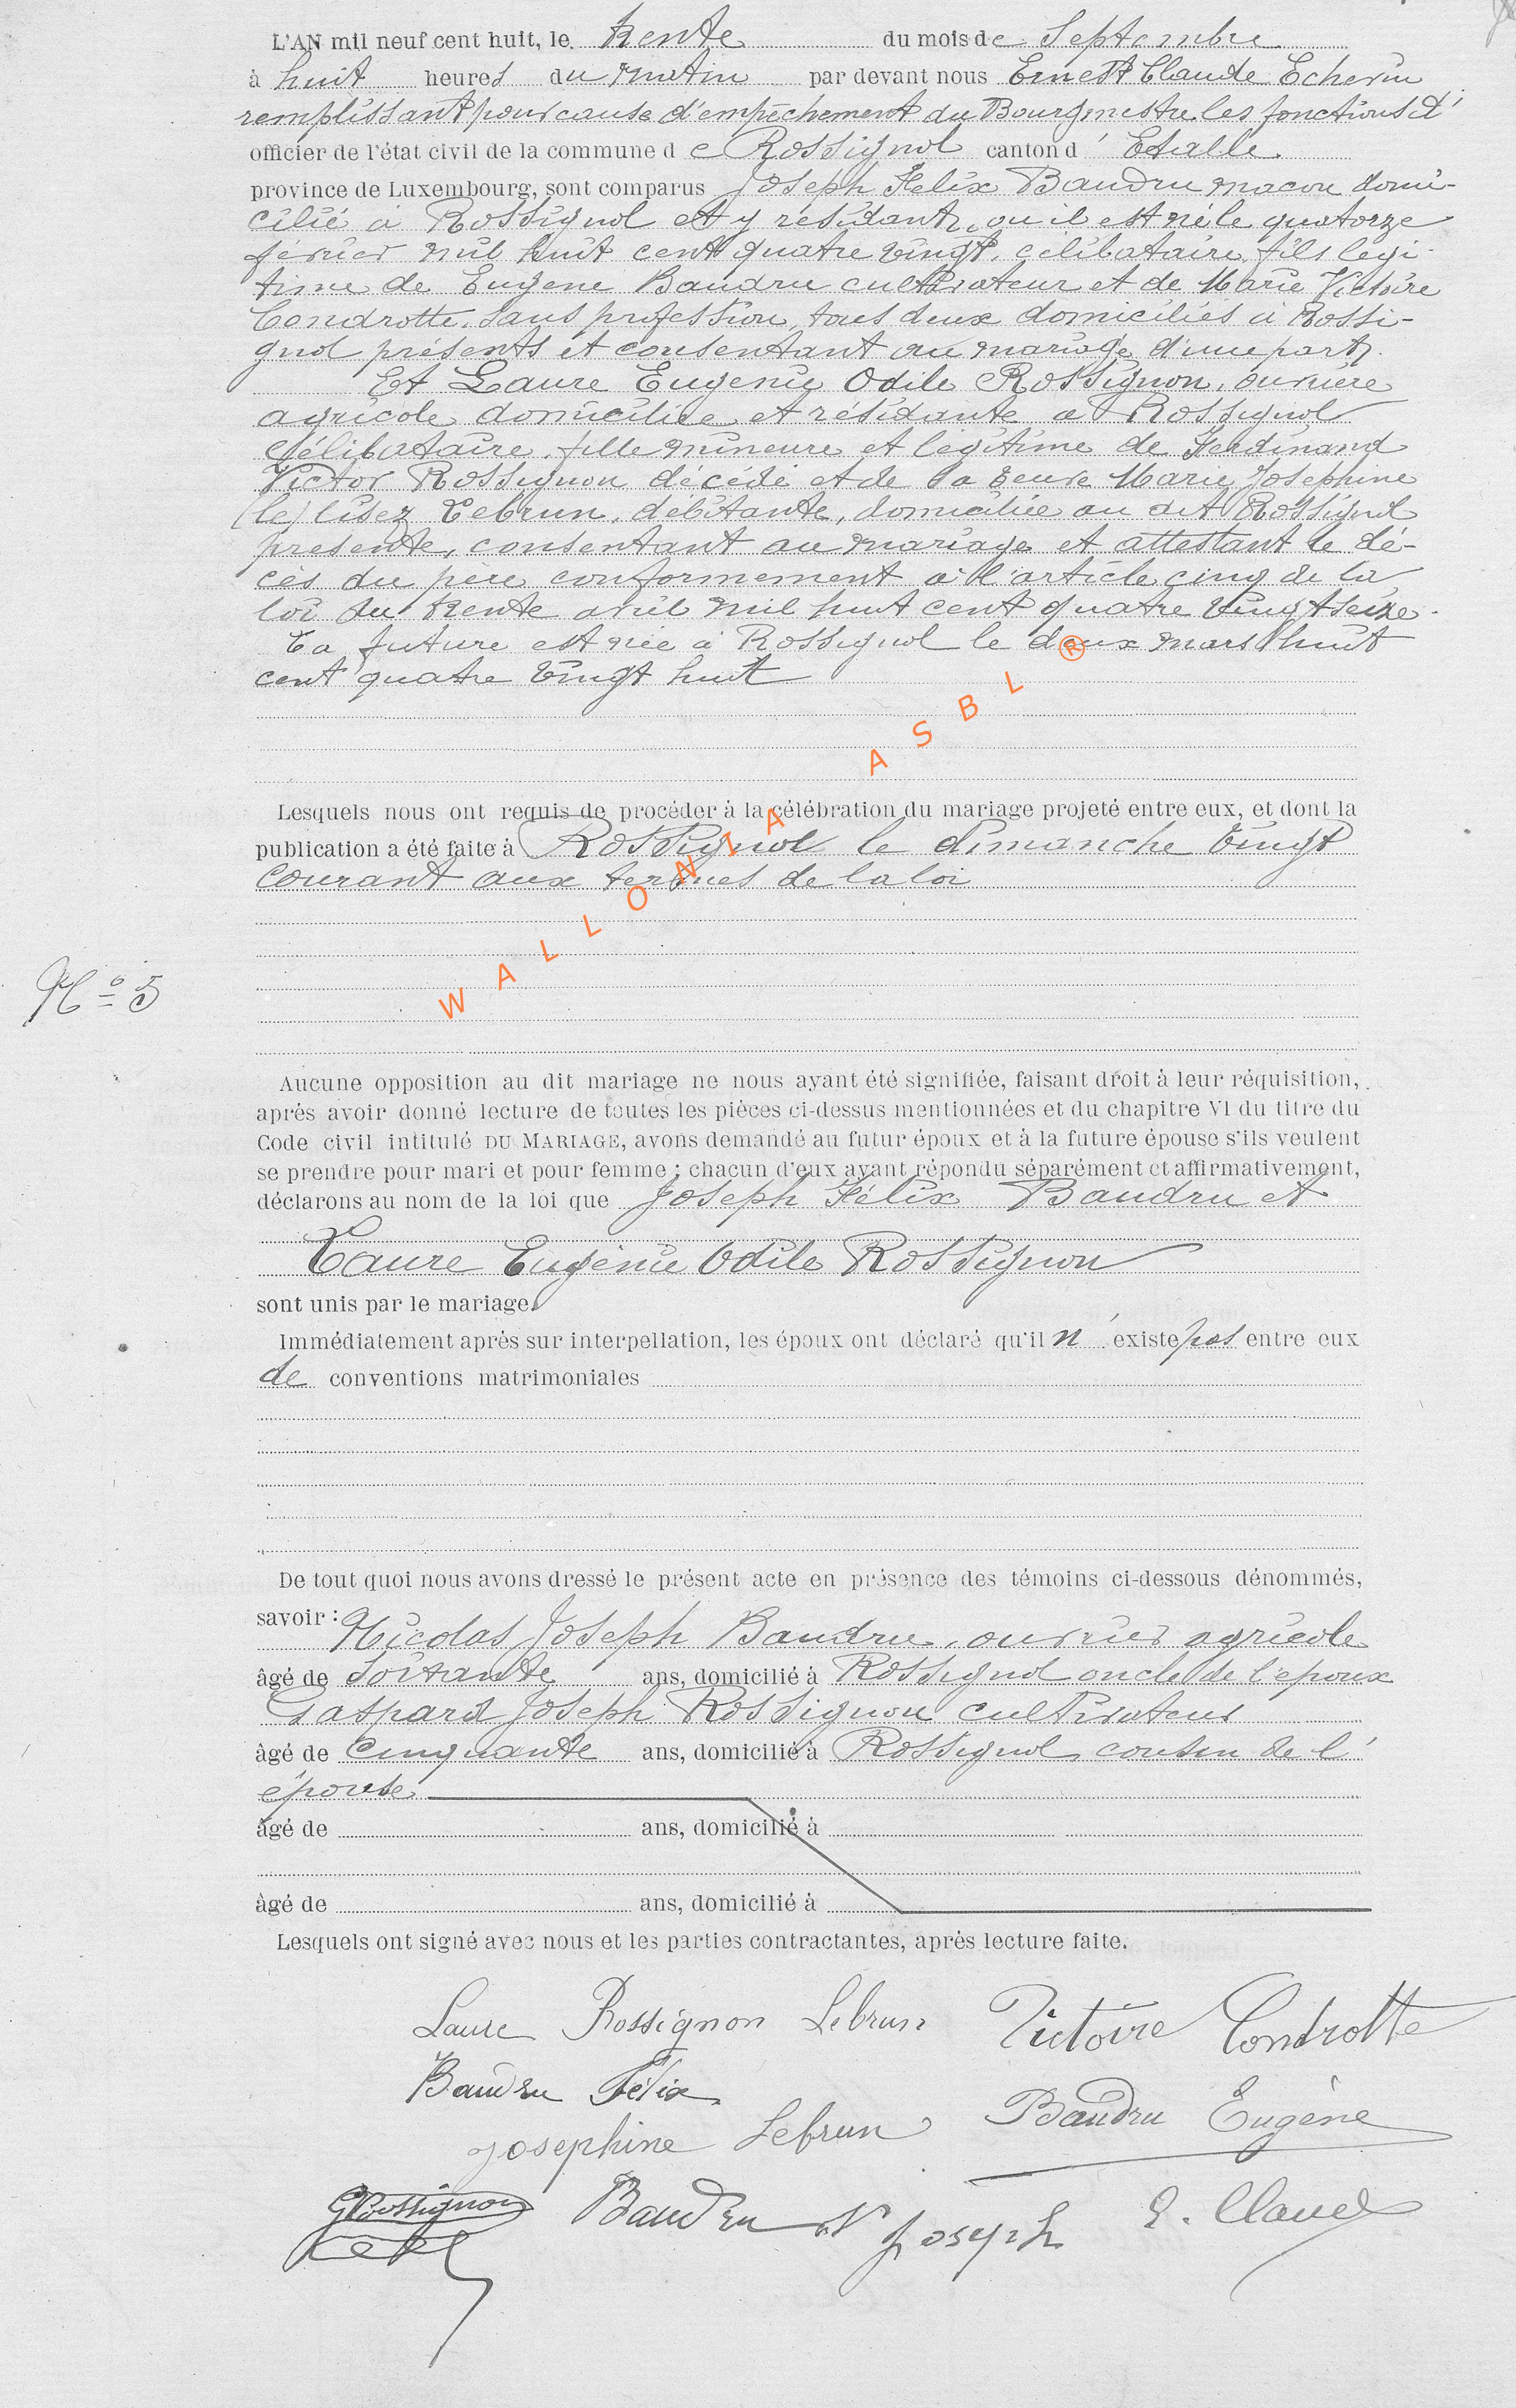 L'AN mil neuf cent huit, le trente du mois de Septembre
à huit heures du matin par devant nous Ernest Claude Echevin
remplissant pour cause d'empêchement du Bourgmestre les fonctions d'
officier de l'état civil de la commune de Rossignol canton d'Etalle
province de Luxembourg, sont comparus Joseph Félix Baudru maçon domi-
cilié à Rossignol et y résidant, où il est né le quatorze
février mil huit cent quatre vingt, célibataire, fils légi-
time de Eugène Baudru cultivateur et de Marie Victoire
Condrotte, sans profession, tous deux domiciliés à Rossi-
gnol présents et consentant au mariage d'une part.
Et Laure Eugénie Odile Rossignon, ouvrière
agricole domiciliée et résidante à Rossignol
célibataire, fille mineure et légitime de Ferdinand
Victor Rossignon décédé et de sa veuve Marie Joséphine
(le) lisez Lebrun, débitante, domiciliée au dit Rossignol
présente, consentant au mariage et attestant le dé-
cès du père conformement à l'article cinq de la
loi du trente avril mil huit cent quatre vingt seize.
La future est née à Rossignol le deux mars huit
cent quatre vingt huit
Lesquels nous ont requis de procéder à la célébration du mariage projeté entre eux, et dont la
publication a été faite à Rossignol le dimanche vingt
courant aux termes de la loi
WALLONIA ASBL ®
N° 5
Aucune opposition au dit mariage ne nous ayant été signifiée, faisant droit à leur réquisition,
après avoir donné lecture de toutes les pièces ci-dessus mentionnées et du chapitre VI du titre du
Code civil intitulé DU MARIAGE, avons demandé au futur époux et à la future épouse s'ils veulent
se prendre pour mari et pour femme ; chacun d'eux ayant répondu séparément et affirmativement,
déclarons au nom de la loi que Joseph Félix Baudru et
Laure Eugénie Odile Rossignon
sont unis par le mariage.
Immédiatement après sur interpellation, les époux ont déclaré qu'il n'existe pas entre eux
de conventions matrimoniales
De tout quoi nous avons dressé le présent acte en présence des témoins ci-dessous dénommés,
savoir : Nicolas Joseph Baudru, ouvrier agricole
âgé de soixante ans, domicilié à Rossignol oncle de l'époux
Gaspard Joseph Rossignon cultivateur
âgé de cinquante ans, domicilié à Rossignol cousin de l'
épouse
âgé de ans, domicilié à
âgé de ans, domicilié à
Lesquels ont signé avec nous et les parties contractantes, après lecture faite.
Laure Rossignon Lebrun Victoire Condrotte
Baudru Félix
Josephine Lebrun Baudru Eugène
G Rossignon Baudru N Joseph E. Claude